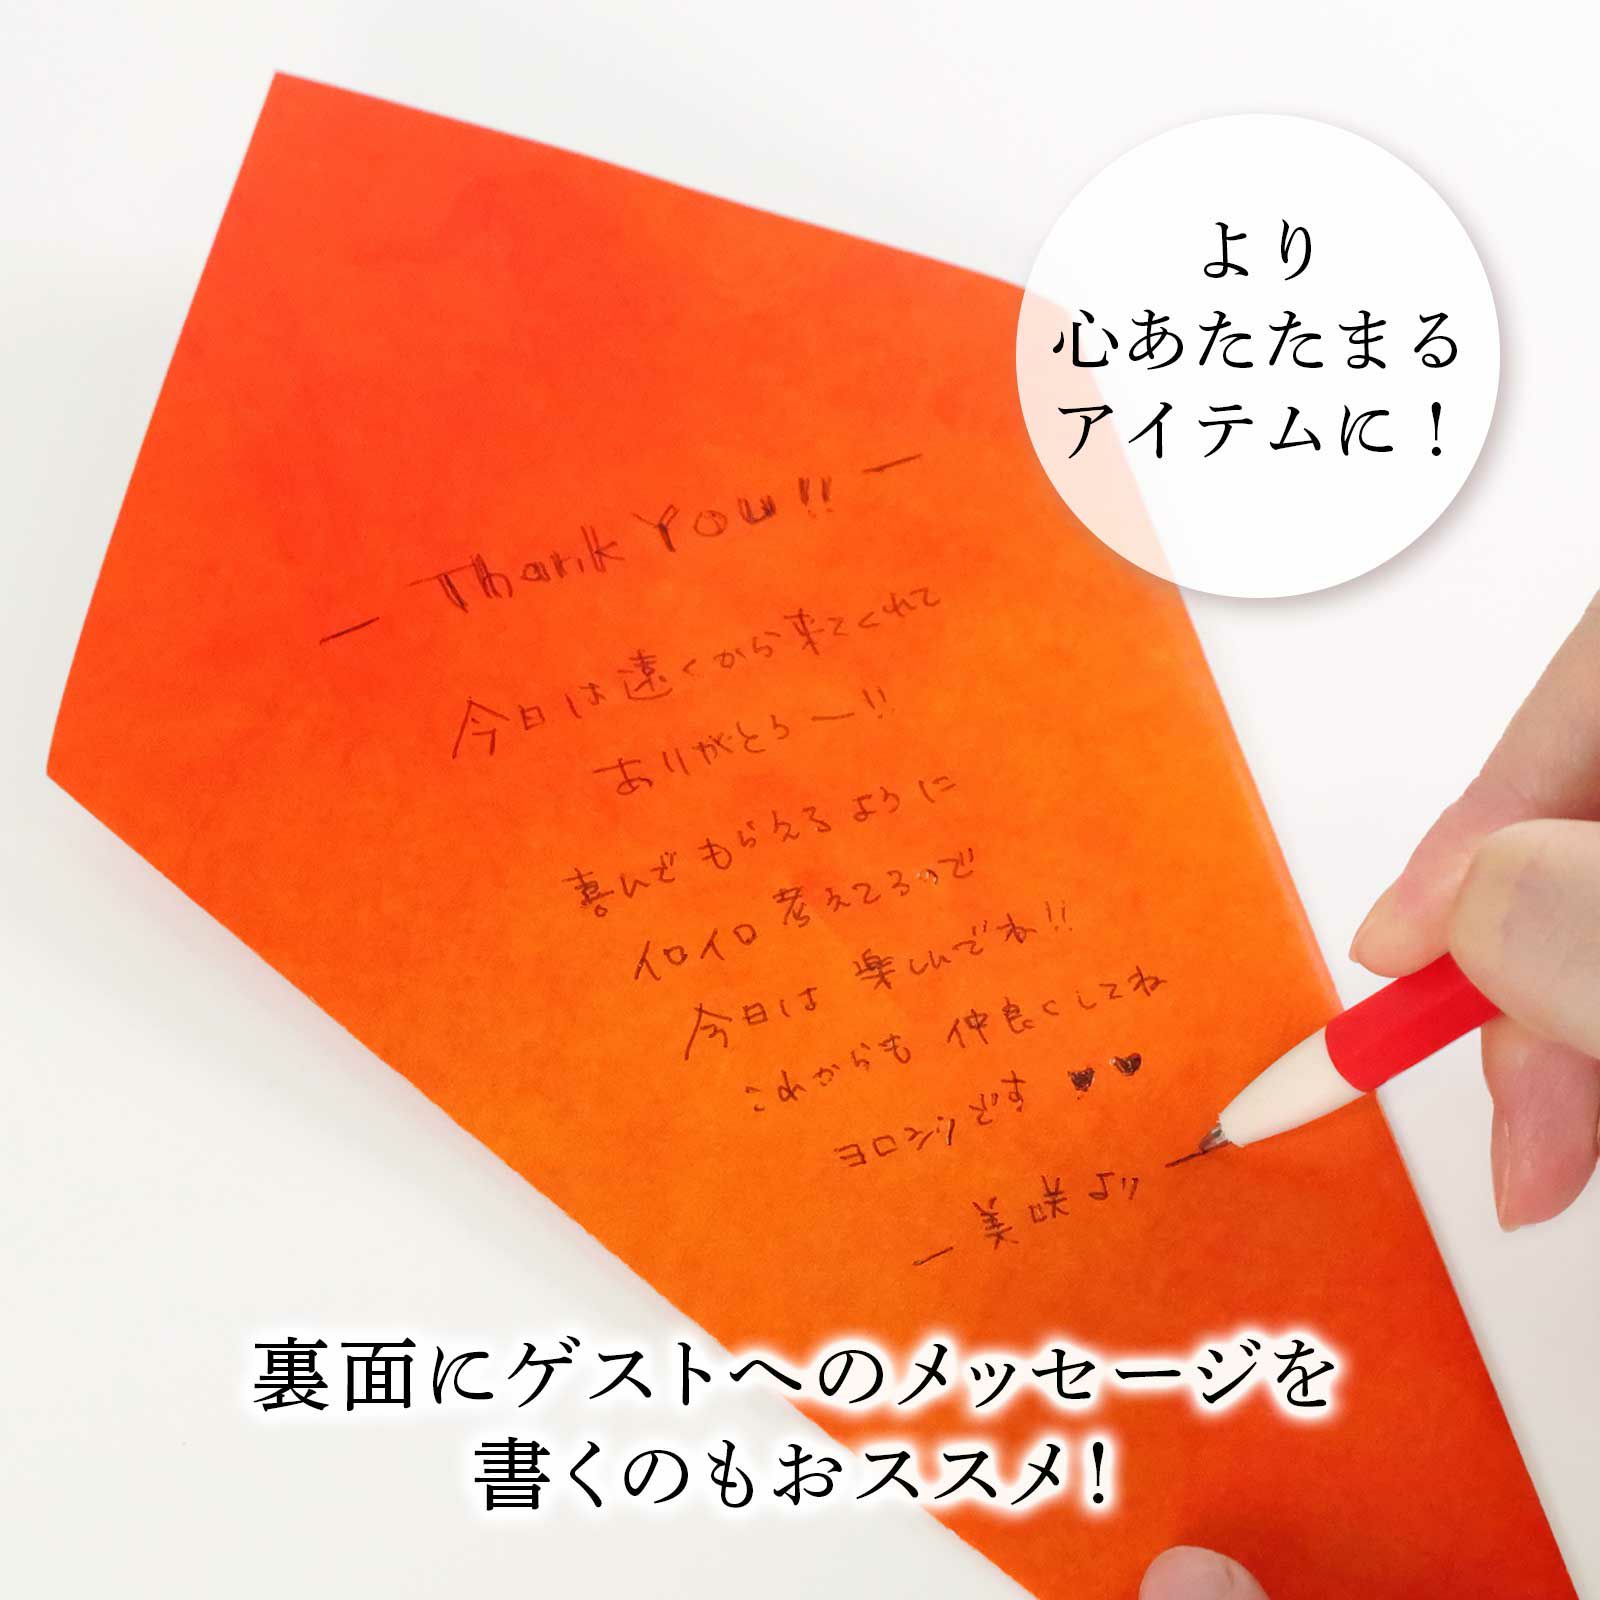 より
心あたたまる
アイテムに！
Thank You!!
今日は遠くから来てくれて
ありがとうー!!
喜んでもらえるように
イロイロ考えてるので
今日は 楽しんでね!!
これからも 仲良くしてね
ヨロシクです ♥♥
美咲より
裏面にゲストへのメッセージを
書くのもおススメ！